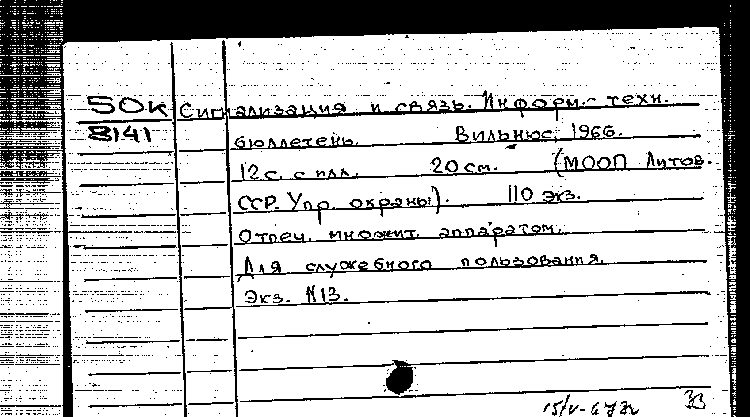 50К Сигнализация и связь. Информ.- техн.
8141 бюллетень. Вильнюс, 1966.
12 с. с илл. 20 см. (МООП Литов.
ССР. Упр. охраны). 110 экз.
Отпеч. множит. аппаратом.
Для служебного пользования.
Экз. N13.